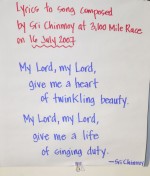 Lyrics to song composed
by Sri Chinmoy at 3,100 Mile Race
on 16 July 2007
My Lord, my Lord,
give me a heart
of twinkling beauty.
My Lord, my Lord,
give me a life
of singing duty.
—Sri Chinmoy